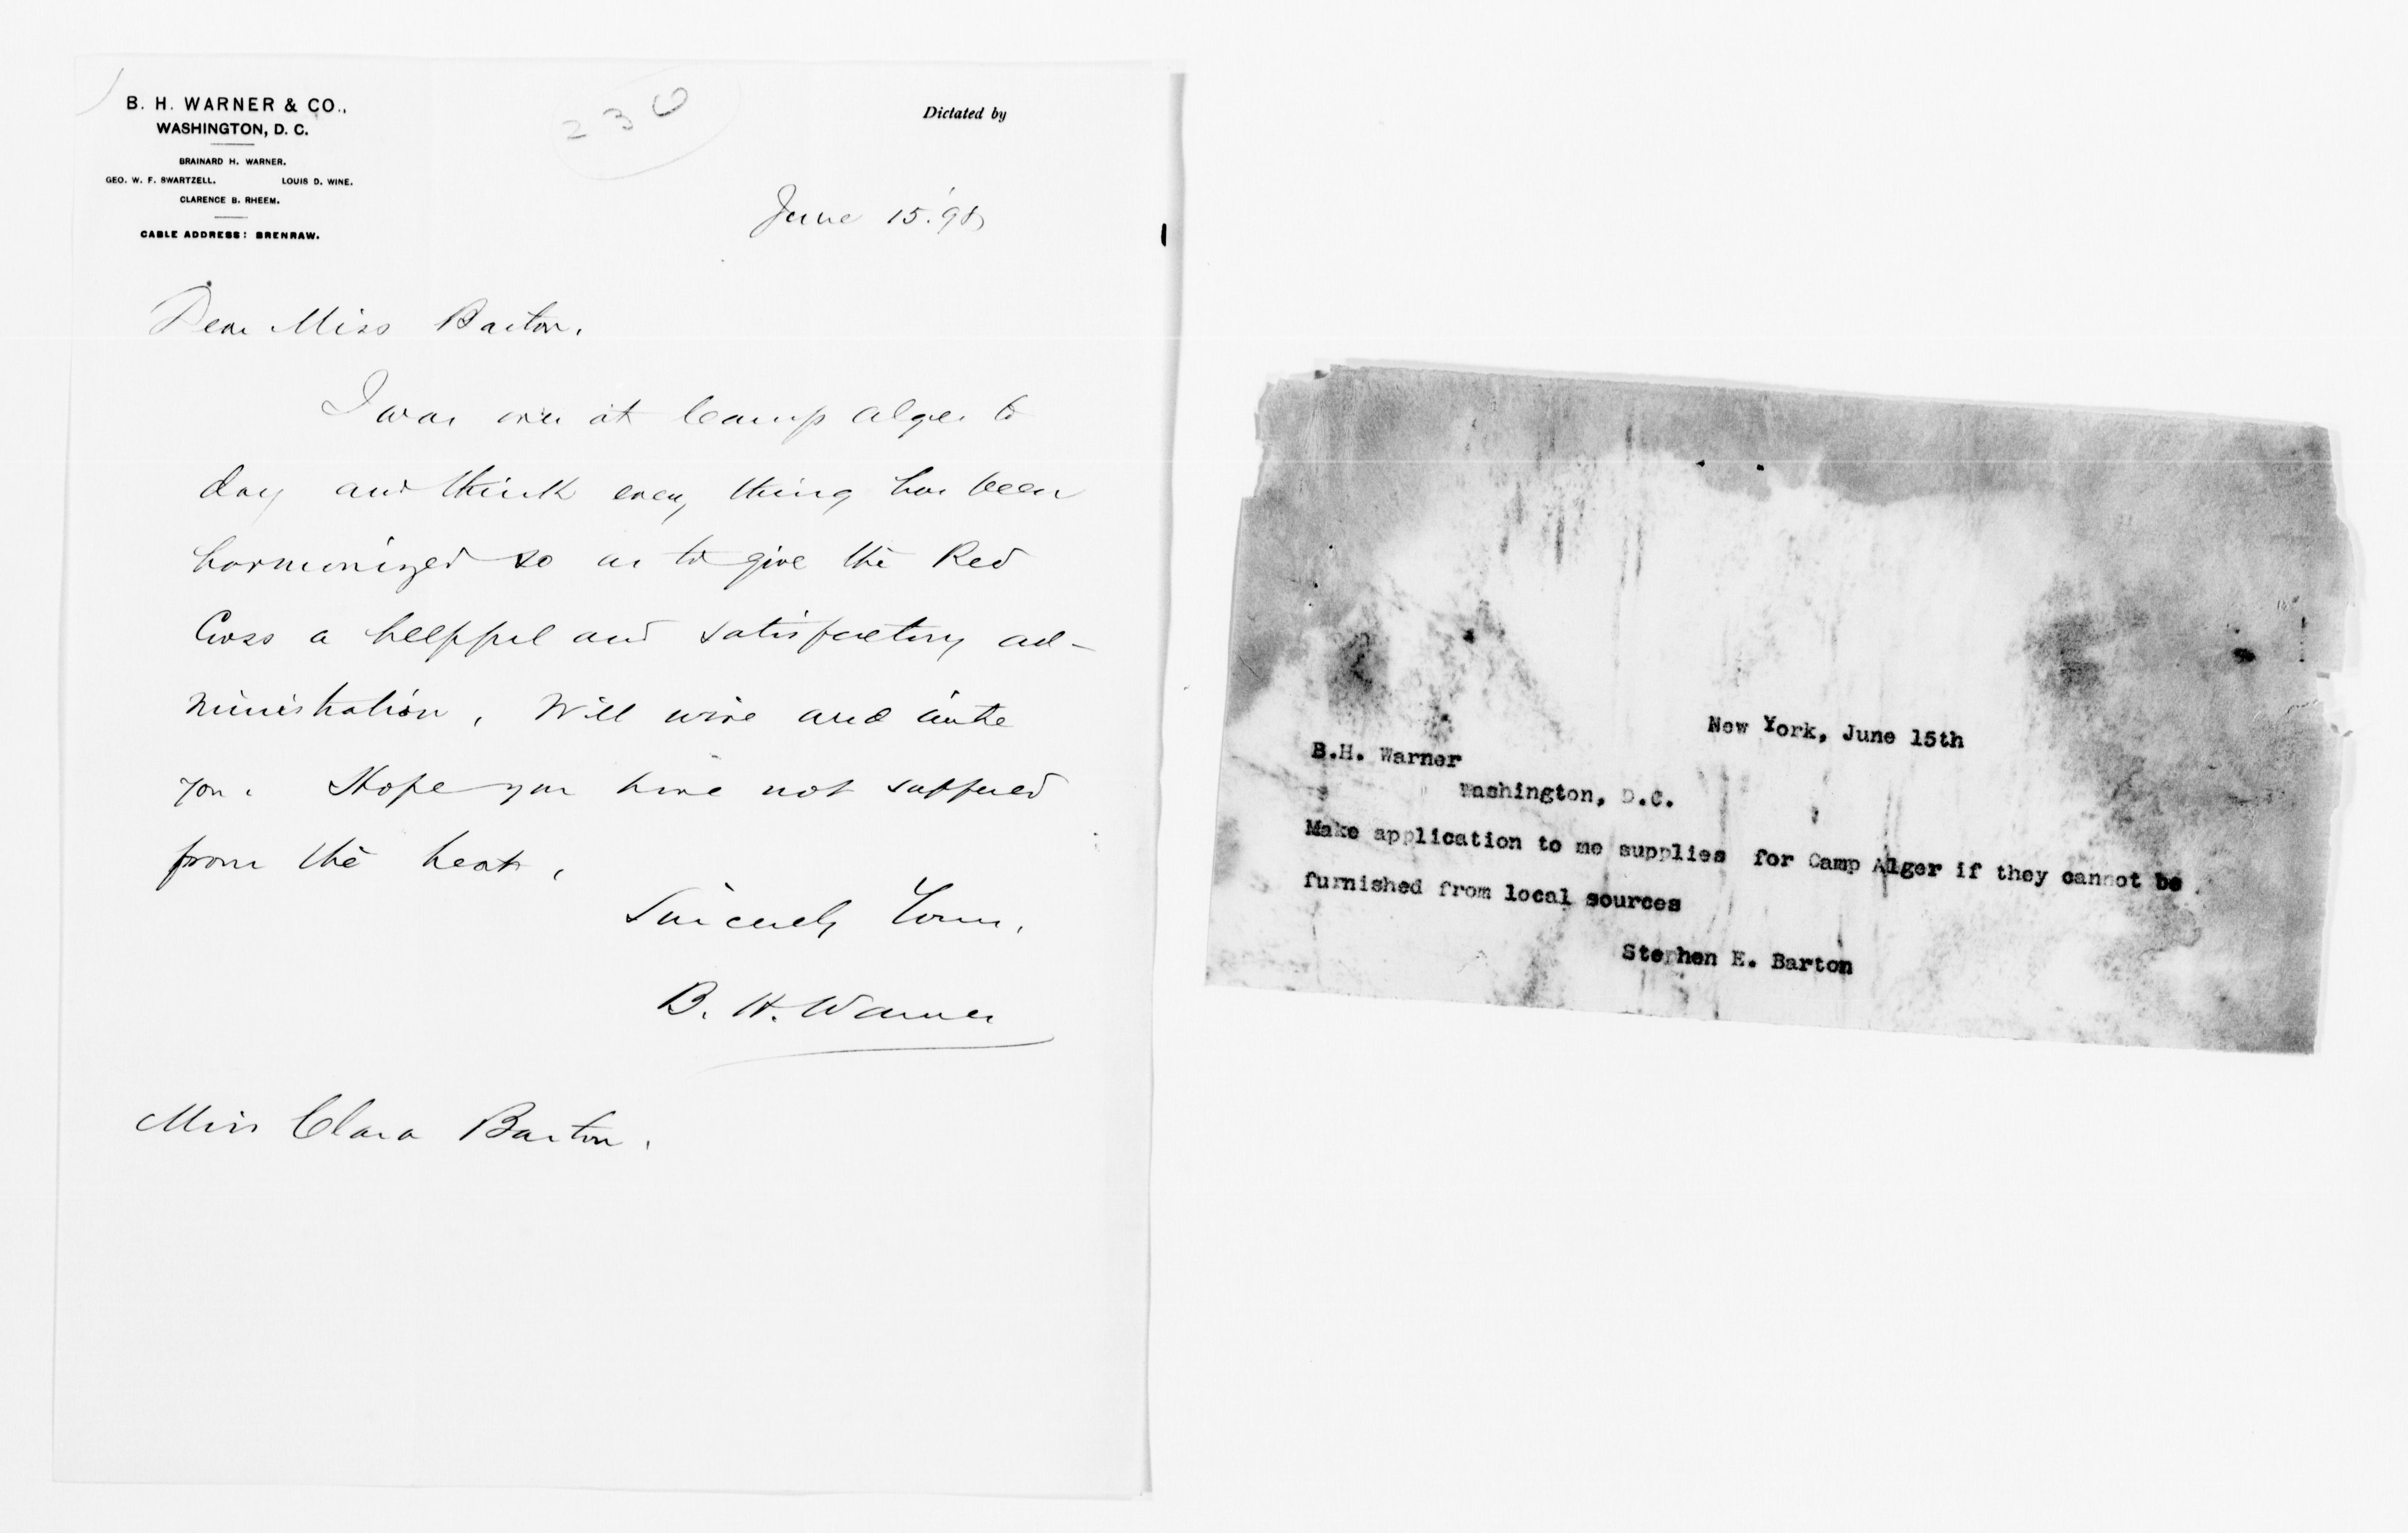 B. H. WARNER & CO.,
WASHINGTON, D. C.
BRAINARD H. WARNER.
GEO. W. F. SWARTZELL. LOUIS D. WINE.
CLARENCE B. RHEEM.
CABLE ADDRESS: BRENRAW.
236
Dictated by
June 15. '98
Dear Miss Barton.
I was over at Camp Alger to
day and think every thing has been
harmonized so as to give the Red
Cross a helpful and satisfactory ad-
ministration. Will wire and write
you. Hope you have not suffered
from the heat.
Sincerely Yours,
B. H. Warner
Miss Clara Barton.
New York, June 15th
B.H. Warner
Washington, D.C.
Make application to me supplies for Camp Alger if they cannot be
furnished from local sources
Stephen E. Barton